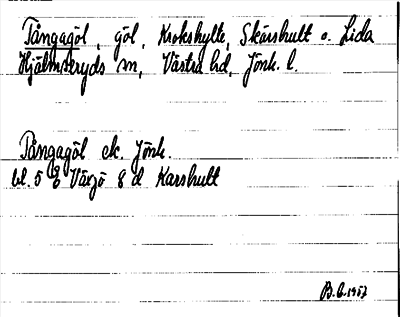 Tångagöl, göl, Krokshylte, Skärshult o. Lida
Hjälmseryds sn, Västra hd, Jönk. l.
Tångagöl ek. Jönk.
bl. 5 E Växjö 8 d Karshult
B.C. 1957